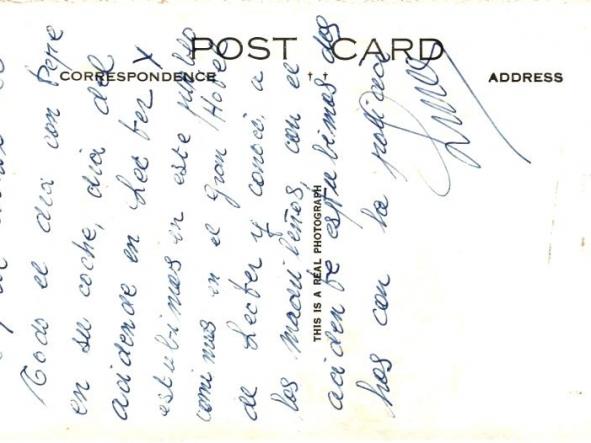 POST CARD
CORRESPONDENCE
ADDRESS
THIS IS A REAL PHOTOGRAPH
Todo el dia con Pepe
en su coche, dia del
acidende en Lecter X
estubimos en este pueblo
comimos en el Gran Hotel
de Lecter y conoci a
los madrileños, con el
acidente estubimos dos
hos con la policia